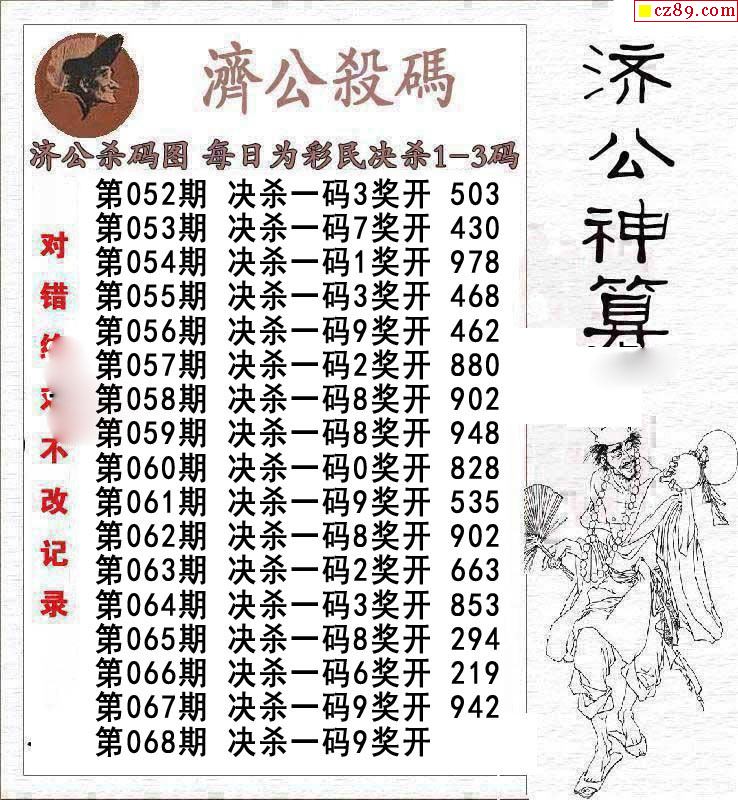 cz89.com
濟公殺碼
济公杀码图 每日为彩民决杀1-3码
第052期 决杀一码3奖开 503
第053期 决杀一码7奖开 430
第054期 决杀一码1奖开 978
第055期 决杀一码3奖开 468
第056期 决杀一码9奖开 462
第057期 决杀一码2奖开 880
第058期 决杀一码8奖开 902
第059期 决杀一码8奖开 948
第060期 决杀一码0奖开 828
第061期 决杀一码9奖开 535
第062期 决杀一码8奖开 902
第063期 决杀一码2奖开 663
第064期 决杀一码3奖开 853
第065期 决杀一码8奖开 294
第066期 决杀一码6奖开 219
第067期 决杀一码9奖开 942
第068期 决杀一码9奖开
对错不改记录
济公神算